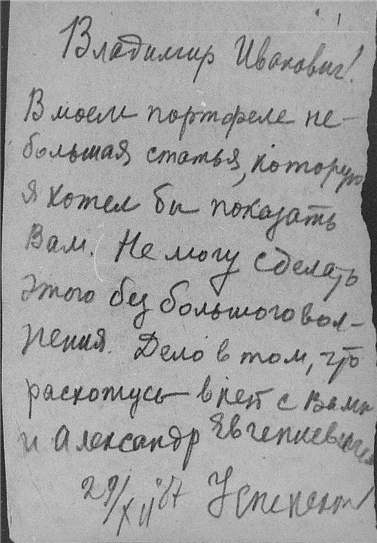 Владимир Иванович!
В моем портфеле не-
большая статья, которую
я хотел бы показать
Вам. Не могу сделать
этого без большого вол-
нения. Дело в том, что
расхожусь в ней с Вами
и Александр Евгениевичем
29/XII 67